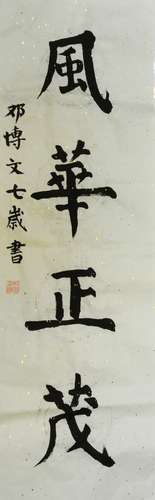 風華正茂
邓博文七歲書